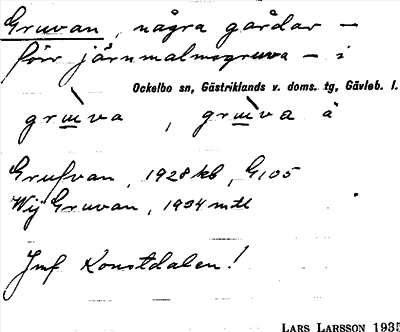 Gruvan, några gårdar –
förr järnmalmsgruva – i
Ockelbo sn, Gästriklands v. doms. tg, Gävleb. l.
grùva, grùva ä
Grufvan, 1928 kb, G105
Wij Gruvan, 1934 mtl
Jmf Konstdalen!
LARS LARSSON 1935